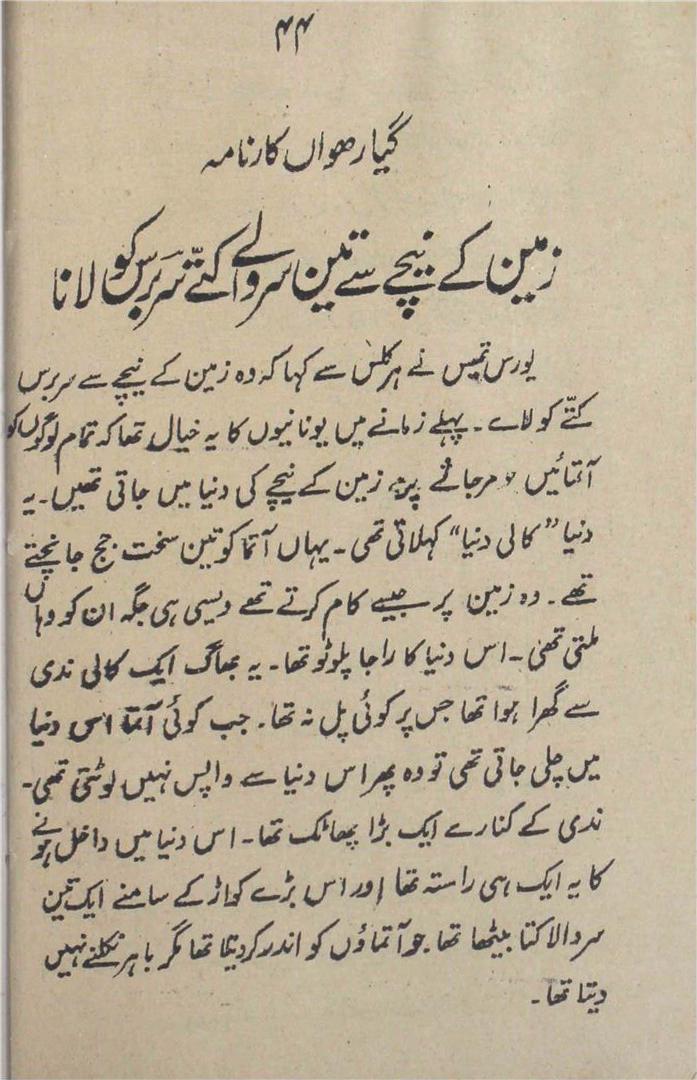 ۴۴
گیارھواں کارنامہ
زمین کے نیچے سے تین سر والے کتّے سَربَرس کو لانا
یورس تھیس نے ہرکلس سے کہا کہ وہ زمین کے نیچے سے سربرس
کتّے کو لائے۔ پہلے زمانے میں یونانیوں کا یہ خیال تھا کہ تمام لوگوں کو
آتمائیں مرجانے پر زمین کے نیچے کی دنیا میں جاتی تھیں۔ یہ
دنیا "کالی دنیا" کہلاتی تھی۔ یہاں آتما کو تین سخت جج جانچتے
تھے۔ وہ زمین پر جیسے کام کرتے تھے ویسی ہی جگہ ان کو وہاں
ملتی تھی۔ اس دنیا کا راجا پلوٹو تھا۔ یہ بھاگ ایک کالی ندی
سے گھرا ہوا تھا جس پر کوئی پل نہ تھا۔ جب کوئی آتما اس دنیا
میں چلی جاتی تھی تو وہ پھر اس دنیا سے واپس نہیں لوٹتی تھی۔
ندی کے کنارے ایک بڑا پھاٹک تھا۔ اس دنیا میں داخل ہونے
کا یہ ایک ہی راستہ تھا اور اس بڑے کواڑ کے سامنے ایک تین
سر والا کتا بیٹھا تھا جو آتماؤں کو اندر کردیتا تھا مگر باہر نکلنے نہیں
دیتا تھا۔